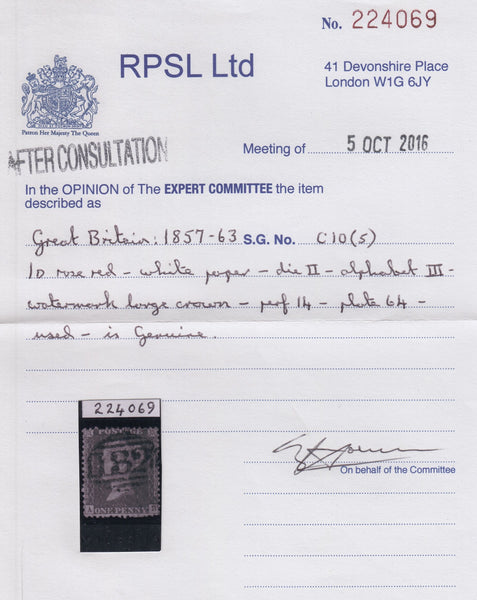 No. 224069
RPSL Ltd
41 Devonshire Place
London W1G 6JY
Patron Her Majesty The Queen
AFTER CONSULTATION
Meeting of 5 OCT 2016
In the OPINION of The EXPERT COMMITTEE the item
described as
Great Britain: 1857-63 S.G. No. C10(5)
1D rose red - white paper - die II - alphabet III -
watermark large crown - perf 14 - plate 64 -
used - is Genuine.
224069
POSTAGE
ONE PENNY
On behalf of the Committee